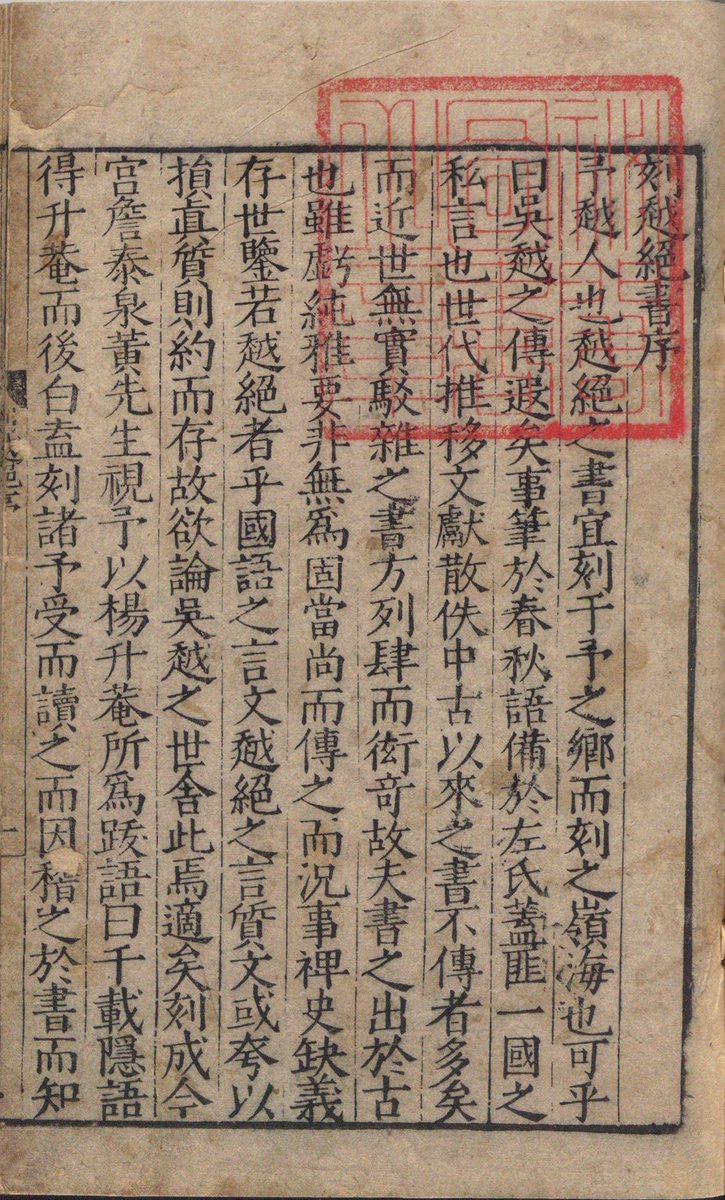 刻越絕書序
予越人也越絕之書宜刻于予之鄉而刻之嶺海也可乎
曰吳越之傳遐矣事筆於春秋語備於左氏蓋匪一國之
私言也世代推移文獻散佚中古以來之書不傳者多矣
而近世無實駁雜之書方列肆而衒竒故夫書之出於古
也雖虧純雅要非無爲固當尚而傳之而況事禆史缺義
存世鑒若越絕者乎國語之言文越絕之言質文或夸以
損眞質則約而存故欲論吳越之世舍此焉適矣刻成今
宮詹泰泉黃先生視予以楊升菴所爲跋語曰千載隱語
得升菴而後白盍刻諸予受而讀之而因稽之於書而知